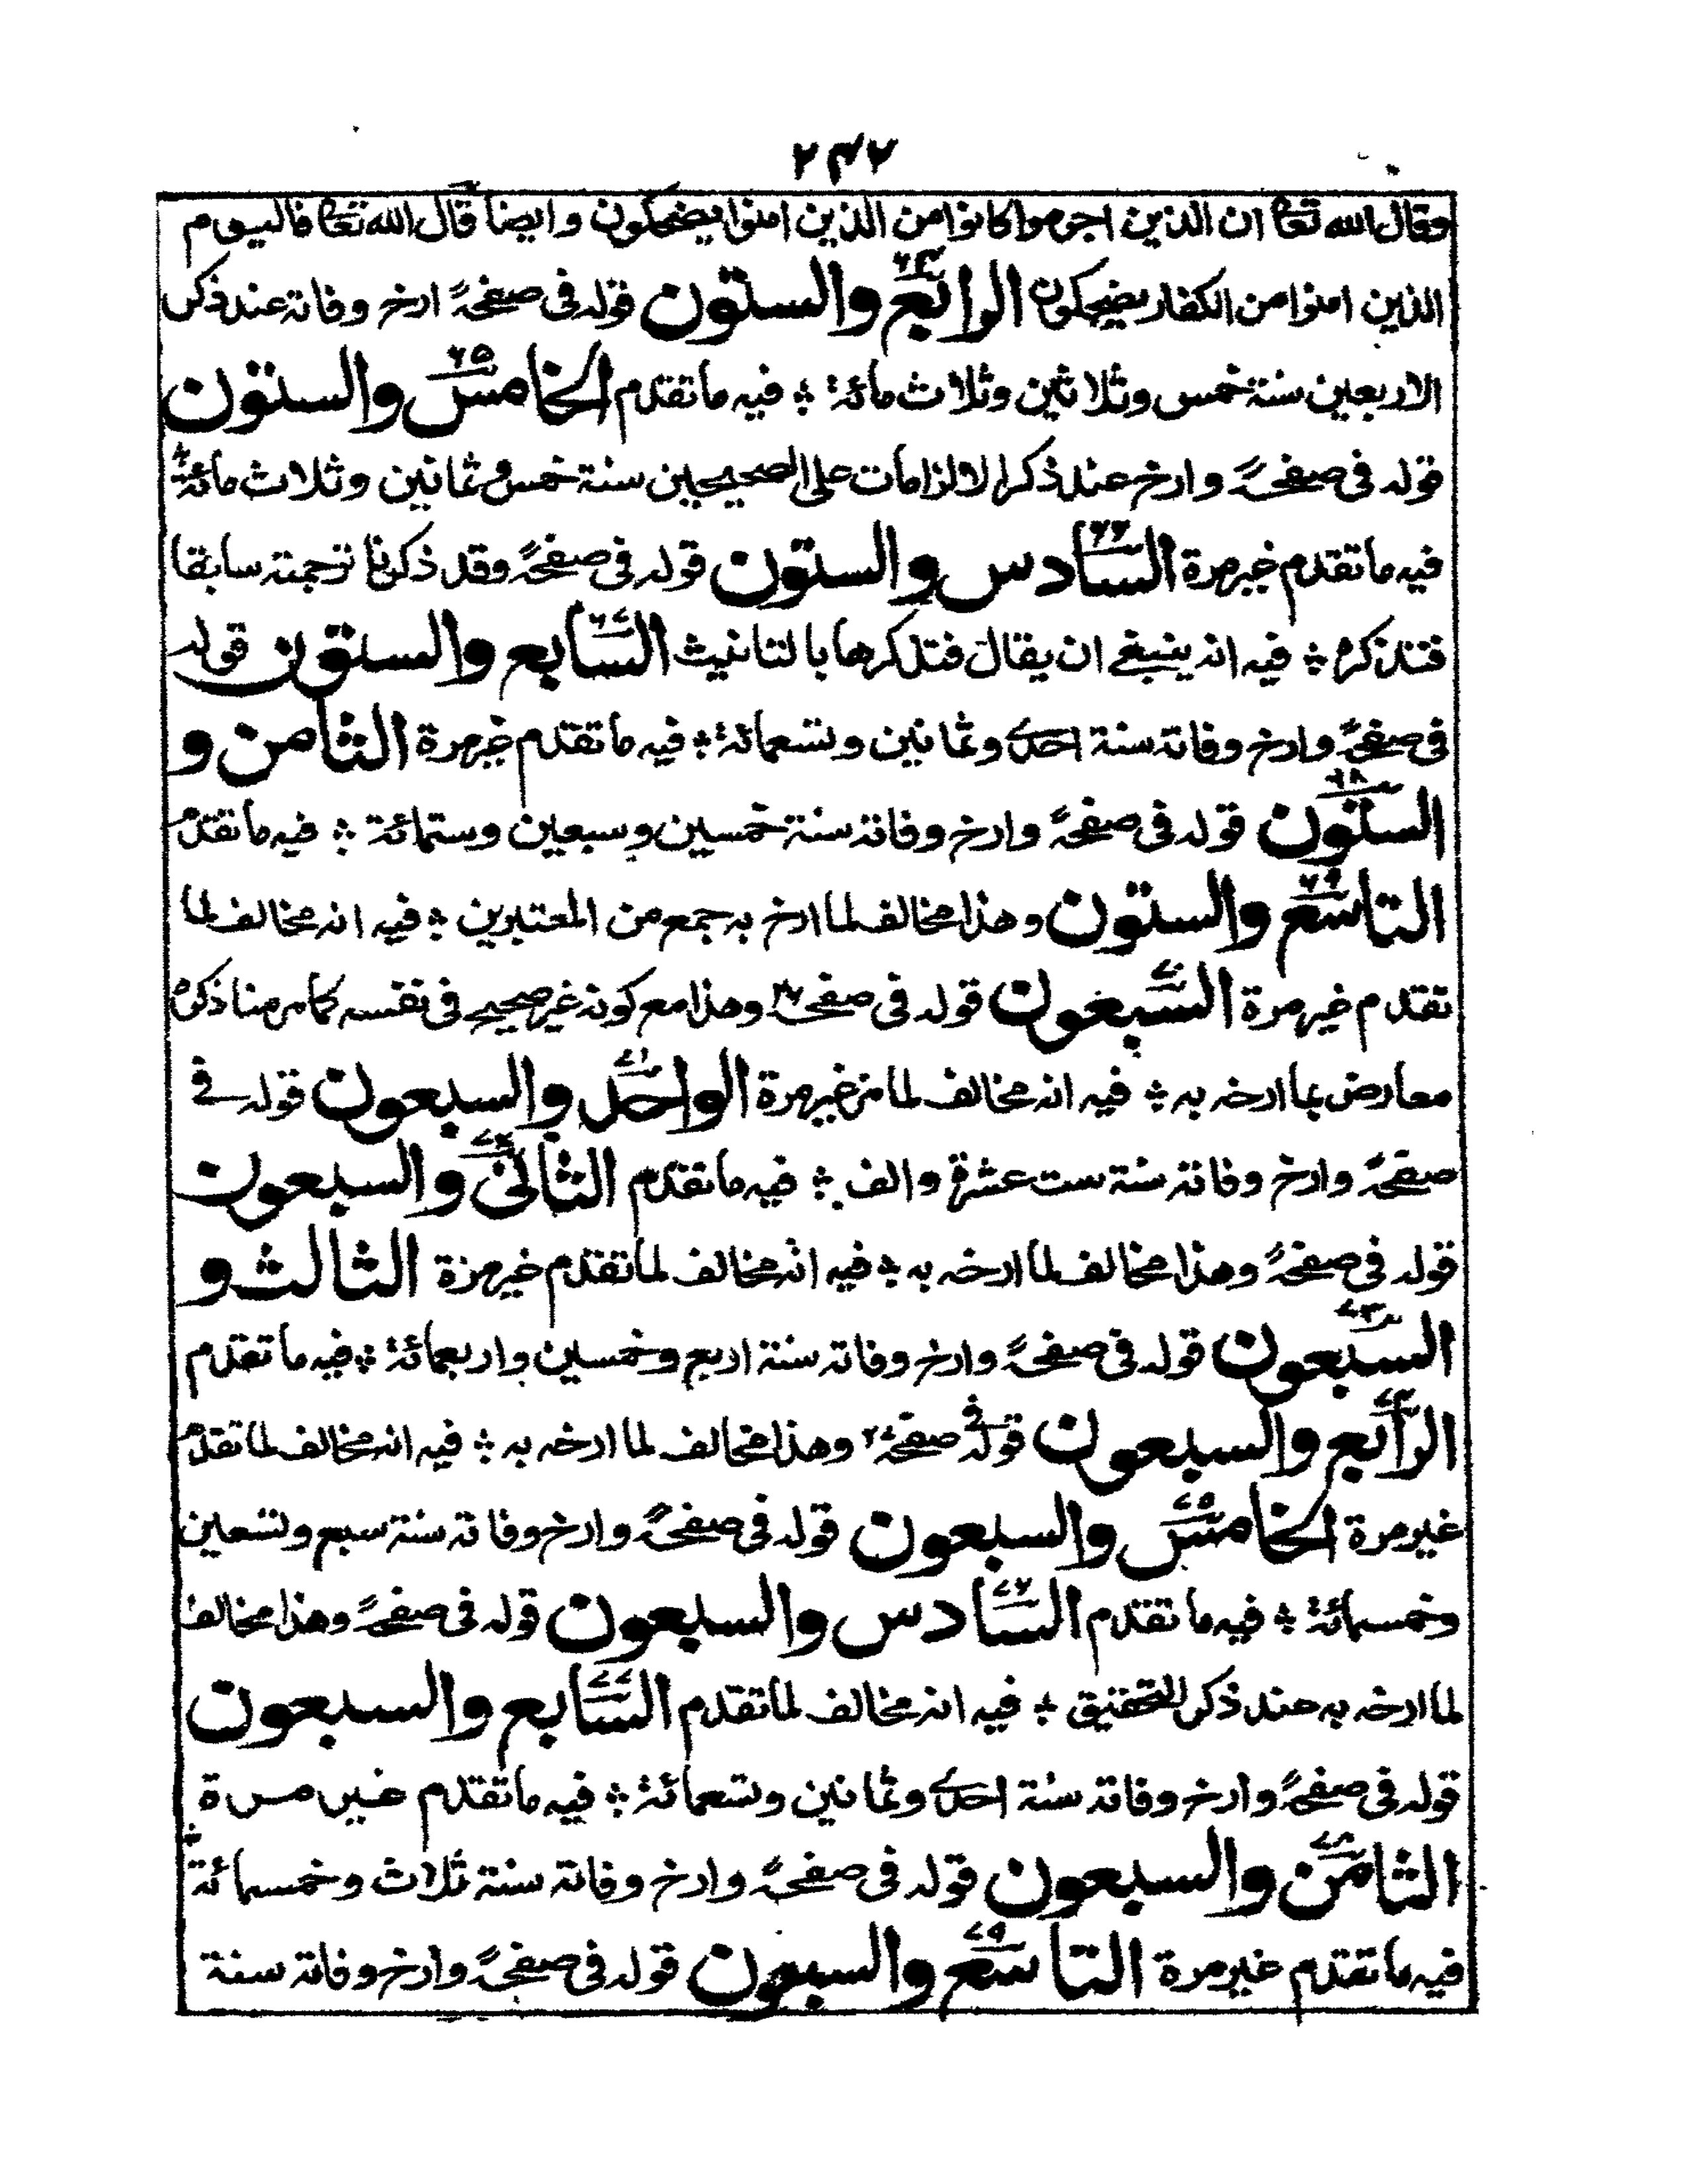 ٢٤٢
وقال الله تعالى ان الذين اجرموا كانوا من الذين امنوا يضحكون وايضا قال الله تعالى فاليوم
الذين امنوا من الكفار يضحكون الرابع والستون ٦٤ قوله في صفحة ارخ وفاته عند ذكر
الاربعين سنة خمس وثلاثين وثلاث مائة ؛ فيه ما تقدم الخامس والستون ٦٥
قوله في صفحة وارخ عند ذكر الالزامات على الصحيحين سنة خمس وثمانين وثلاث مائة ؛
فيه ما تقدم غير مرة السادس والستون ٦٦ قوله في صفحة وقد ذكرنا ترجمته سابقا
فتذكره ؛ فيه انه ينبغي ان يقال فتذكرها بالتانيث السابع والستون ٦٧ قوله
في صفحة وارخ وفاته سنة احدى وثمانين وتسعمائة ؛ فيه ما تقدم غير مرة الثامن و
الستون ٦٨ قوله في صفحة وارخ وفاته سنة خمسين وسبعين وستمائة ؛ فيه ما تقدم
التاسع والستون ٦٩ وهذا مخالف لما ارخ به جمع من المعتبرين ؛ فيه انه مخالف لما
تقدم غير مرة السبعون ٧٠ قوله في صفحة وهذا مع كونه غير صحيح في نفسه كما مر منا ذكره
معارض بما ارخه به ؛ فيه انه مخالف لما مر غير مرة الواحد والسبعون ٧١ قوله في
صفحة وارخ وفاته سنة ست عشرة والف ؛ فيه ما تقدم الثاني والسبعون ٧٢
قوله في صفحة وهذا مخالف لما ارخه به ؛ فيه انه مخالف لما تقدم غير مرة الثالث و
السبعون ٧٣ قوله في صفحة وارخ وفاته سنة اربع وخمسين واربعمائة ؛ فيه ما تقدم
الرابع والسبعون ٧٤ قوله في صفحة وهذا مخالف لما ارخه به ؛ فيه انه مخالف لما تقدم
غير مرة الخامس والسبعون ٧٥ قوله في صفحة وارخ وفاته سنة سبع وتسعين
وخمسمائة ؛ فيه ما تقدم السادس والسبعون ٧٦ قوله في صفحة وهذا مخالف
لما ارخه به عند ذكر التحقيق ؛ فيه انه مخالف لما تقدم السابع والسبعون ٧٧
قوله في صفحة وارخ وفاته سنة احدى وثمانين وتسعمائة ؛ فيه ما تقدم غير مرة
الثامن والسبعون ٧٨ قوله في صفحة وارخ وفاته سنة ثلاث وخمسمائة ؛
فيه ما تقدم غير مرة التاسع والسبعون ٧٩ قوله في صفحة وارخ وفاته سنة